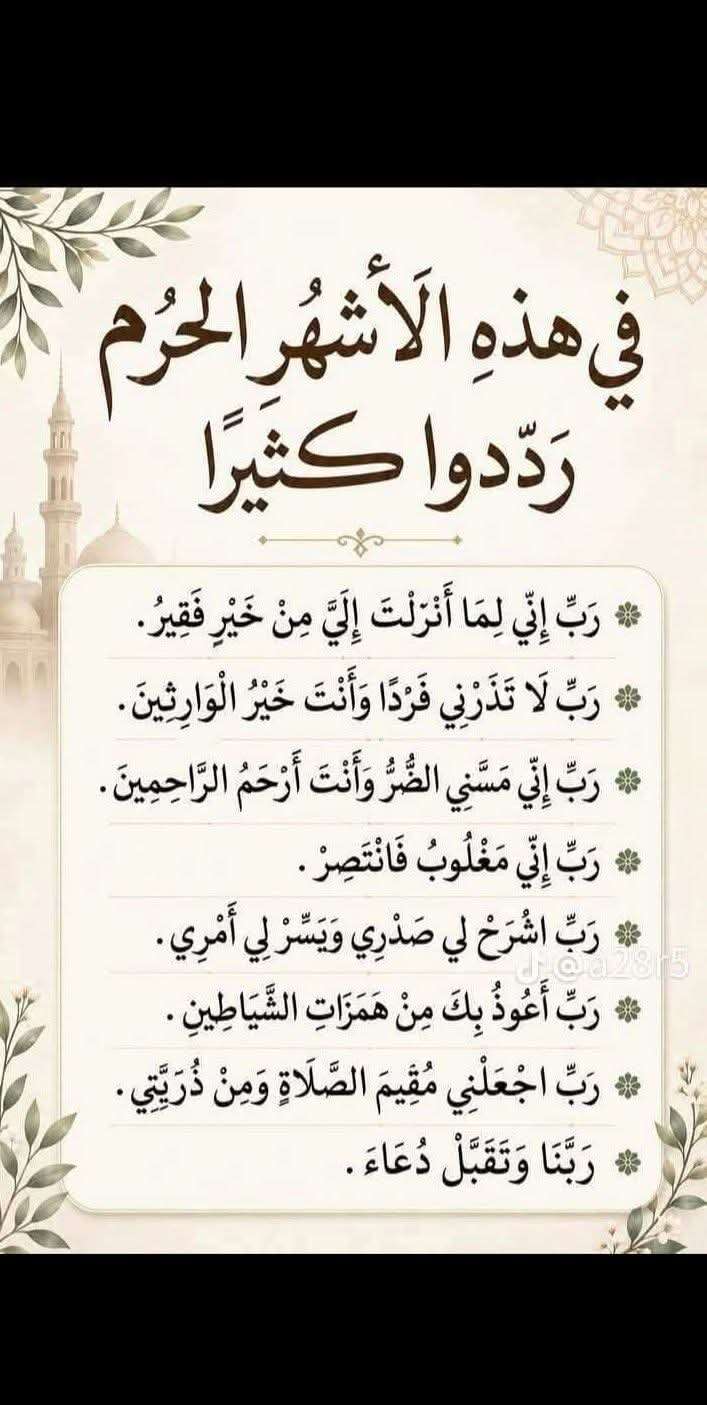 في هذهِ الَأشهُرِ الحرُم
رَدّدوا كثيرًا
رَبِّ إِنِّي لِمَا أَنْزَلْتَ إِلَيَّ مِنْ خَيْرٍ فَقِيرُ.
رَبِّ لَا تَذَرْنِي فَرْدًا وَأَنْتَ خَيْرُ الْوَارِثِينَ.
رَبِّ إِنِّي مَسَّنِي الضُّرُّ وَأَنْتَ أَرْحَمُ الرَّاحِمِينَ.
رَبِّ إِنِّي مَغْلُوبُ فَانْتَصِرْ.
رَبِّ اشْرَحْ لي صَدْرِي وَيَسِّرْ لِي أَمْرِي.
@a28r5
رَبِّ أَعُوذُ بِكَ مِنْ هَمَزَاتِ الشَّيَاطِينِ.
رَبِّ اجْعَلْنِي مُقِيمَ الصَّلَاةِ وَمِنْ ذُرِّيَّتِي.
رَبَّنَا وَتَقَبَّلْ دُعَاءَ.